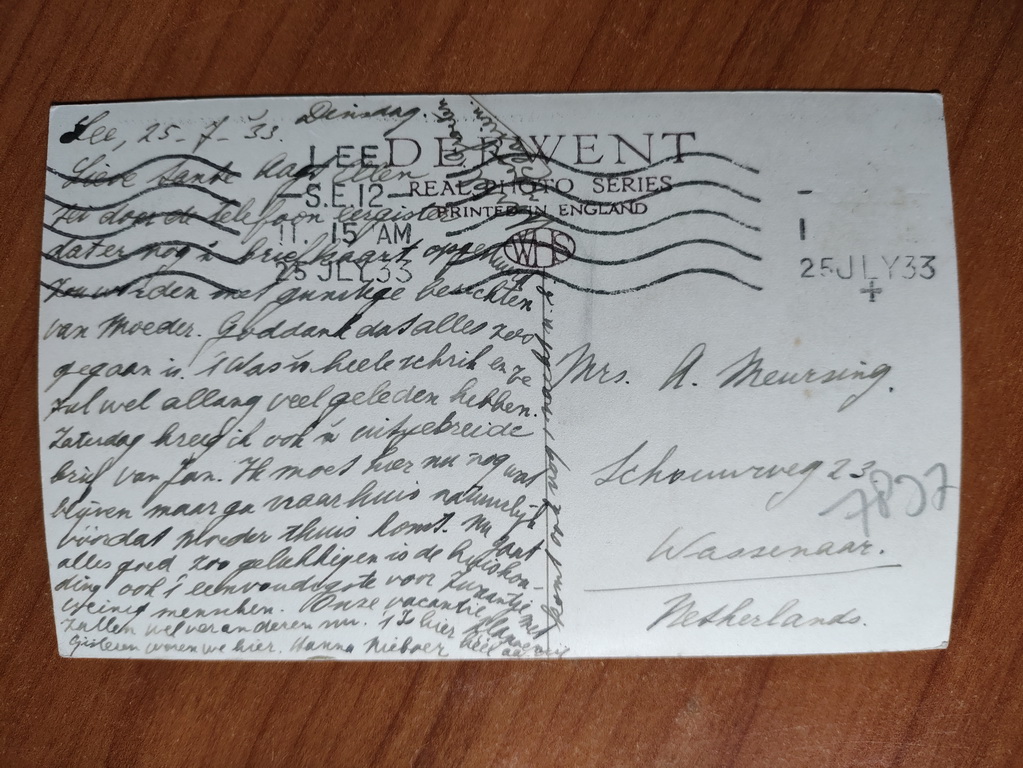 Lee, 25-7-33. Dinsdag.
Lieve tante
door de telefoon eergisteren
dat er nog 'n briefkaart
zou worden met gunstige berichten
van Moeder. Goddank dat alles zoo
gegaan is. 't Was 'n heele schrik en ze
zal wel allang veel geleden hebben.
Zaterdag kreeg ik ook 'n uitgebreide
brief van Jan. Ik moet hier nu nog wat
blijven maar ga naar huis natuurlijk
vóórdat Moeder thuis komt. Nu gaat
alles goed zoo gelukkig en is de huishou-
ding ook 't eenvoudigste voor met
weinig menschen. Onze vacantie plannen
zullen wel veranderen nu. 't Is hier heel
Gisteren waren we hier. Hanna Nieboer
LEE
S.E.12
11. 15 AM
25 JLY 33
DERWENT
REAL PHOTO SERIES
PRINTED IN ENGLAND
25 JLY 33
+
Mrs. A. Meursing.
Schouwweg 23
7837
Wassenaar.
Netherlands.